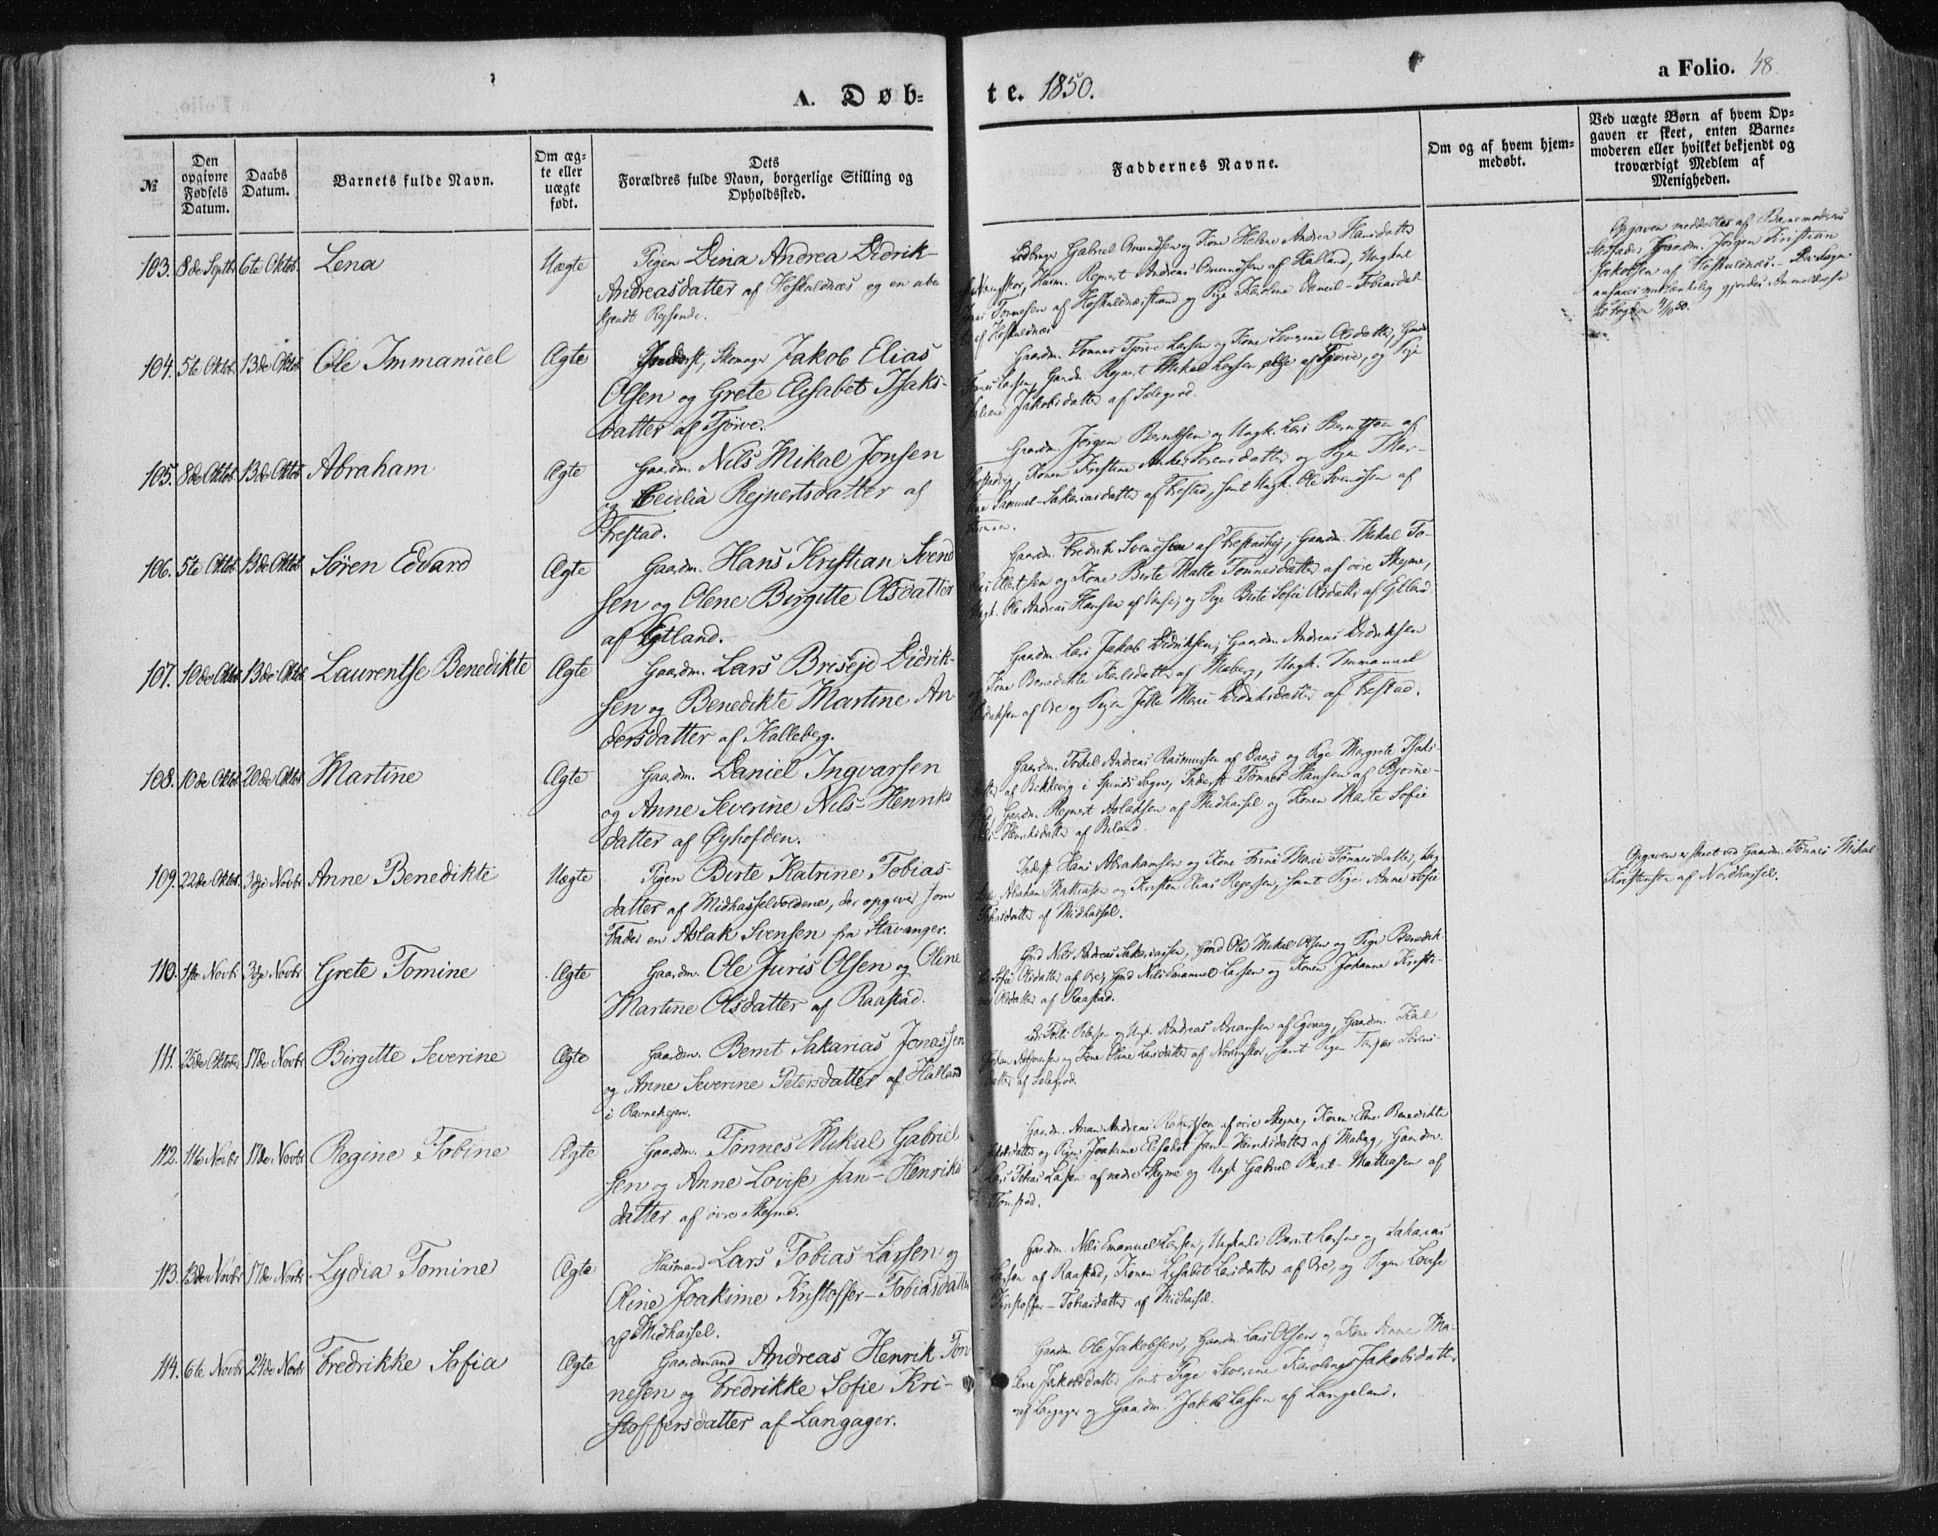 A. Døb-
te. 1850.
a Folio. 48
№
Den opgivne Fødsels Datum.
Daabs Datum.
Barnets fulde Navn.
Om ægte eller uægte født.
Dets Forældres fulde Navn, borgerlige Stilling og Opholdssted.
Faddernes Navne.
Om og af hvem hjemmedøbt.
Ved uægte Børn af hvem Opgaven er skeet, enten Barnemoderen eller hvilket bekjendt og troværdigt Medlem af Menigheden.
103. 8de Septbr 6te Oktob. Lena Uægte
Pigen Dina Andrea Didrik-
Andreasdatter af Høskuldnæs og en ube
kjendt Rejsende.
Gabriel Omundsen og Kone Helene Andrea Hansdatter
Husm. Rejnert Andreas Omundsen af Halland, Ungkal
Tønnesen af Høskuldnæs og Pige
af Høskuldnæs
Opgaven meddeeltes af Barnemoderens
Gaardm. Jørgen Kristian
Jakobsen af Høskuldnæs.
104. 5te Oktob. 13de Oktob. Ole Immanuel Ægte
Inderst, Skomager Jakob Elias
Olsen og Grete Elisabet Isaks-
datter af Tjørve.
Gaardm. Tønnes Tjørve Larsen og Kone Severine Olsdatter, Gaardm
Larsen, Gaardm. Rejnert Mikal Larsen alle af Tjørve, og Pige
Jakobsdatter af
105. 8de Oktob. 13de Oktob. Abraham Ægte
Gaardm. Nils Mikal Jonsen
og Cecilia Rejnertsdatter af
Vestad.
Gaardm. Jørgen Berntsen og Ungk. Lars Berntsen af
Konen Kristine Andrea Sørensdatter og Pige Mar-
Samuel-Sakariasdatter af Vestad, samt Ungk. Ole Svendsen af
106. 5te Oktob. 13de Oktob. Søren Edvard Ægte
Gaardm. Hans Kristian Svend
sen og Olene Birgitte Olsdatter
af Ejtland.
Gaardm. Fredrik Svendsen af Vestadhej, Gaardm. Mikal To-
bias Ellertsen og Kone Birte Malle Tønnesdatter af øvre Skejme,
Ungk. Ole Andreas Hansen af og Pige Birte Sofie Olsdatter af Ejtland.
107. 10de Oktob 13de Oktob. Laurentse Benedikte Ægte
Gaardm. Lars Brisejd Didrik-
sen og Benedikte Martine An
dersdatter af Kalleberg.
Gaardm. Lars Jakob Didriksen, Gaardm. Andreas Didriksen
og Kone Benedikte Karlsdatter af Maberg, Ungk. Immanuel
Didriksen af Ore og Pigen Jelle Marie Didriksdatter af Vestad.
108. 10de Oktob. 20de Oktob. Martine Ægte
Gaardm. Daniel Ingvarsen
og Anne Severine Nils-Henriks
datter af Øyhofden.
Gaardm. Todel Andreas Rasmussen af Daas og Pige Margrete Isaks-
datter af Bekkevig i Spinds Sogn, Inderst Tønnes Hansen af Bjørne-
Gaardm. Rejnert Aslaksen af Midhassel og Konen Marte Sofie
Nils-Henriksdatter af Briland.
109. 22de Oktob. 3dje Novbr Anne Benedikte Uægte
Pigen Birte Katrine Tobias-
datter af Midhasselvoldene, der opgiver som
Fader en Aslak Svensen fra Stavanger.
Inderst Hans Abrahamsen og Kone Trine Marie Tønnesdatter, Ung
Abraham Mattiasen og Kristen Elias Rejersen, samt Pige Anne Sofie
Tobiasdatter af Midhassel.
Opgaven er skeet ved Gaardm. Tønnes Mikal
Kristensen af Nordhassel.
110. 1ste Novbr 3dje Novbr Grete Tomine Ægte
Gaardm. Ole Juris Olsen og Oline
Martine Olsdatter af Raastad.
Gmd Nils Andreas Sakariassen, Gmd Ole Mikal Olsen og Pige Benedik-
te Sofie Olsdatter af Ore, Gmd Nils Emanuel Larsen og Konen Johanne Kristi-
ne Olsdatter af Raastad.
111. 25de Oktober 17de Novbr Birgitte Severine Ægte
Gaardm. Bernt Sakarias Jonassen
og Anne Severine Petersdatter af Halland
i Ravnehejen.
Andreas Anansen af Egvaag, Gaardm. Karl
og Kone Oline Larsdatter af samt Pigen Tonjær Sørens-
datter af
112. 11te Novbr 17de Novbr Regine Tobine Ægte
Gaardm. Tønnes Mikal Gabriel
sen og Anne Lovise Jan-Henriks
datter af øvre Skejme.
Gaardm. Anan Andreas af øvre Skejme, Konen Elene Benedikte
Jakobsdatter og Pigen Joakime Elisabet Jan-Henriksdatter af Maberg, Gaardm.
Lars Tobias Larsen af nedre Skejme og Ungk. Gabriel Bernt-Mattiasen af
Tomstad.
113. 13de Novbr 17de Novbr Lydia Tomine Ægte
Husmand Lars Tobias Larsen og
Oline Joakime Kristoffer-Tobiasdatter
af Midhassel.
Gaardm. Nils Emanuel Larsen, Ungkarle Bernt Larsen og Sakarias
Larsen af Raastad, Konen Elisabet Larsdatter af Ore, og Pigen Lovise
Kristoffer-Tobiasdatter af Midhassel.
114. 6te Novbr 24de Novbr Fredrikke Sofia Ægte
Gaardmand Andreas Henrik Tøn
nesen og Fredrikke Sofie Kri-
stoffersdatter af Langager.
Gaardm. Ole Jakobsen, Gaardm. Lars Olsen og Kone Anne Ma-
lene Jakobsdatter samt Pige Severine Karoline Jakobsdatter
af Langager og Gaardm. Jakob Larsen af Langeland.